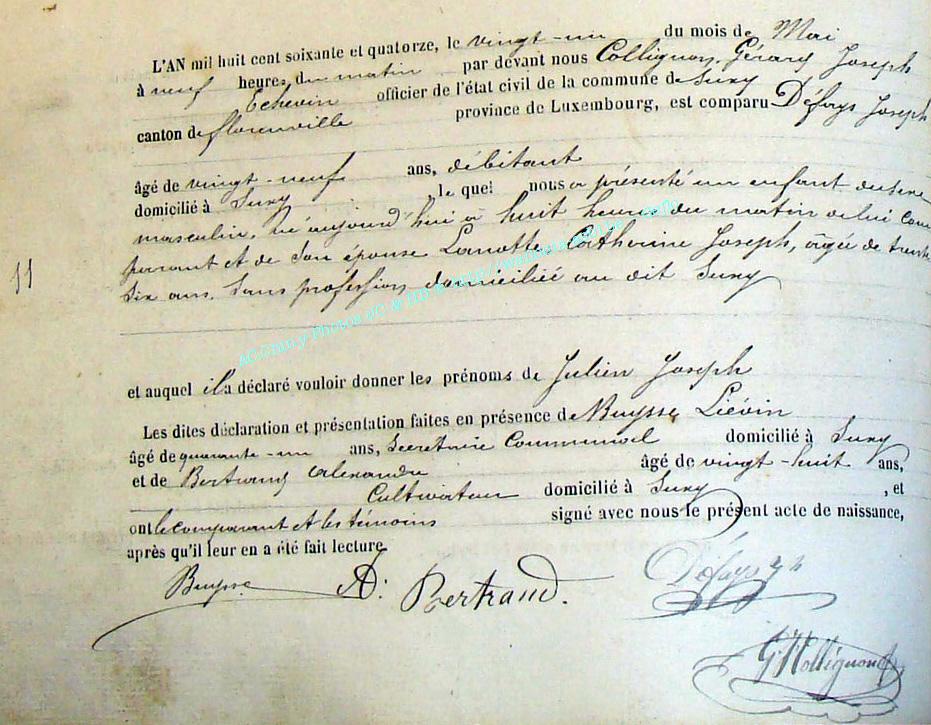 L'AN mil huit cent soixante et quatorze, le vingt-un du mois de Mai
à neuf heures du matin par devant nous Collignon, Gérard Joseph
Echevin officier de l'état civil de la commune de Suxy
canton de florenville province de Luxembourg, est comparu Défays Joseph
âgé de vingt-neuf ans, débitant
domicilié à Suxy, le quel nous a présenté un enfant du sexe
masculin, né aujourd'hui à huit heures du matin de lui com
parant et de son épouse Lanotte, Catherine Joseph, âgée de trente
six ans, sans profession, domiciliée au dit Suxy
11
et auquel il a déclaré vouloir donner les prénoms de Julien Joseph
Les dites déclaration et présentation faites en présence de Buysse Liévin
âgé de quarante-un ans, Secrétaire Communal domicilié à Suxy
et de Bertrand Alexandre âgé de vingt-huit ans,
Cultivateur domicilié à Suxy, et
ont le comparant et les témoins signé avec nous le présent acte de naissance,
après qu'il leur en a été fait lecture
Buysse A: Bertrand. Défays
G Collignon